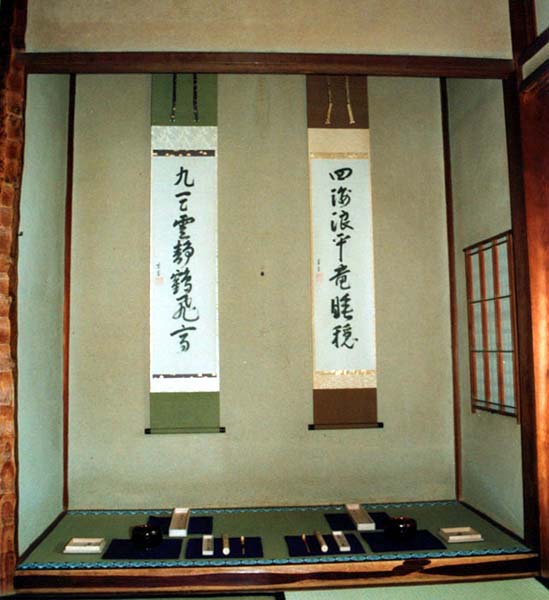 四海浪平竜睡穏
九天雲静鶴飛高